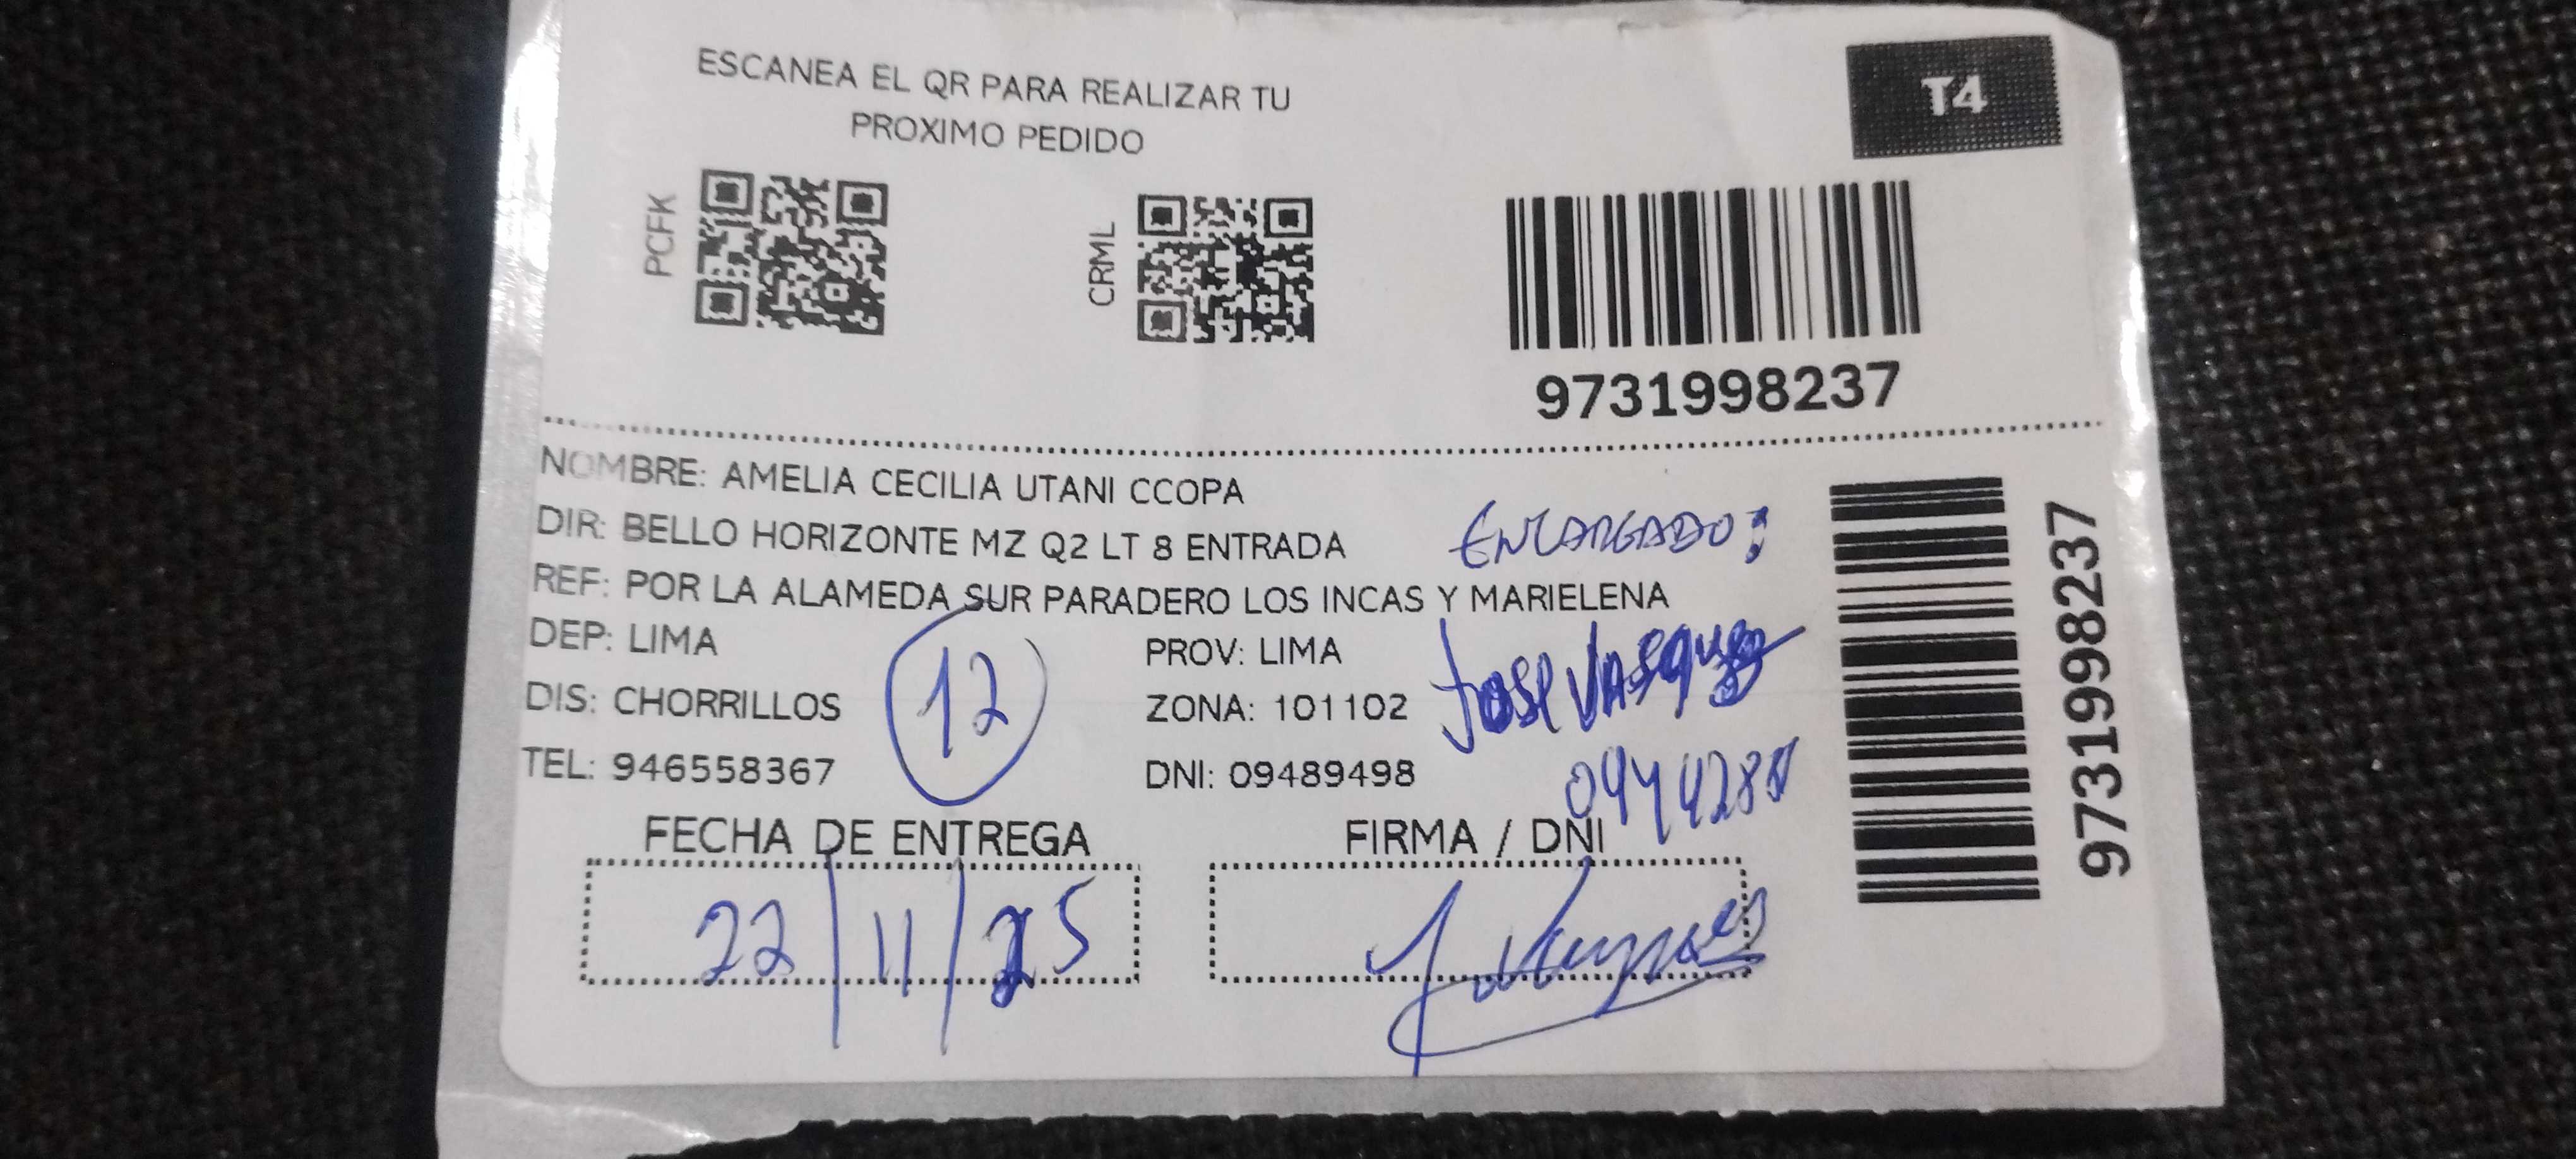 ESCANEA EL QR PARA REALIZAR TU
PROXIMO PEDIDO
T4
PCFK
CRML
9731998237
NOMBRE: AMELIA CECILIA UTANI CCOPA
DIR: BELLO HORIZONTE MZ Q2 LT 8 ENTRADA
ENCARGADO:
REF: POR LA ALAMEDA SUR PARADERO LOS INCAS Y MARIELENA
DEP: LIMA
PROV: LIMA
Jose Vasquez
DIS: CHORRILLOS
12
ZONA: 101102
TEL: 946558367
DNI: 09489498
FECHA DE ENTREGA
FIRMA / DNI
22/11/25
9731998237